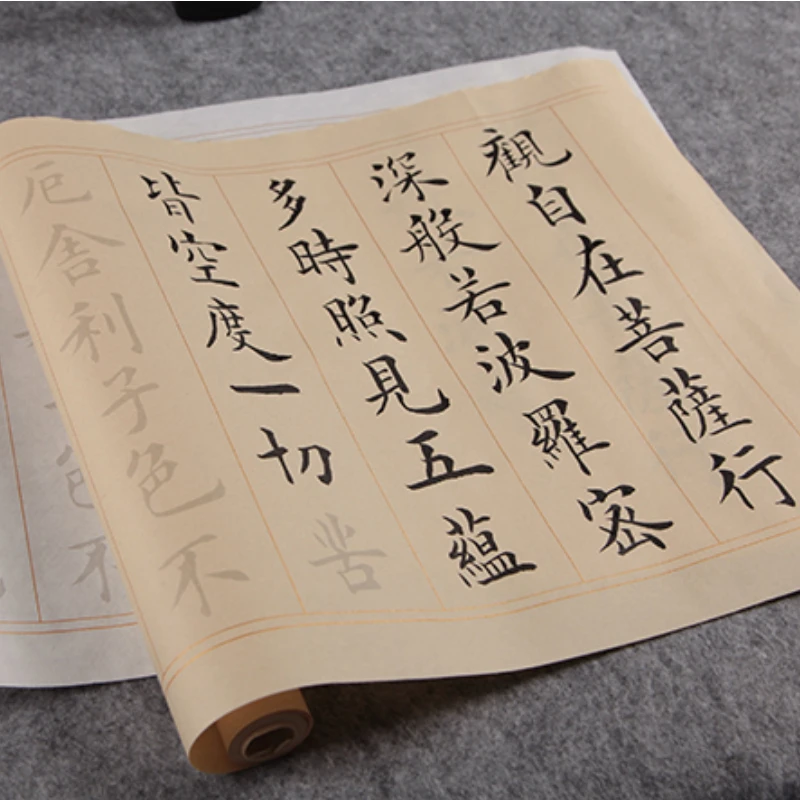 觀自在菩薩行
深般若波羅密
多時照見五蘊
皆空度一切苦
厄舍利子色不